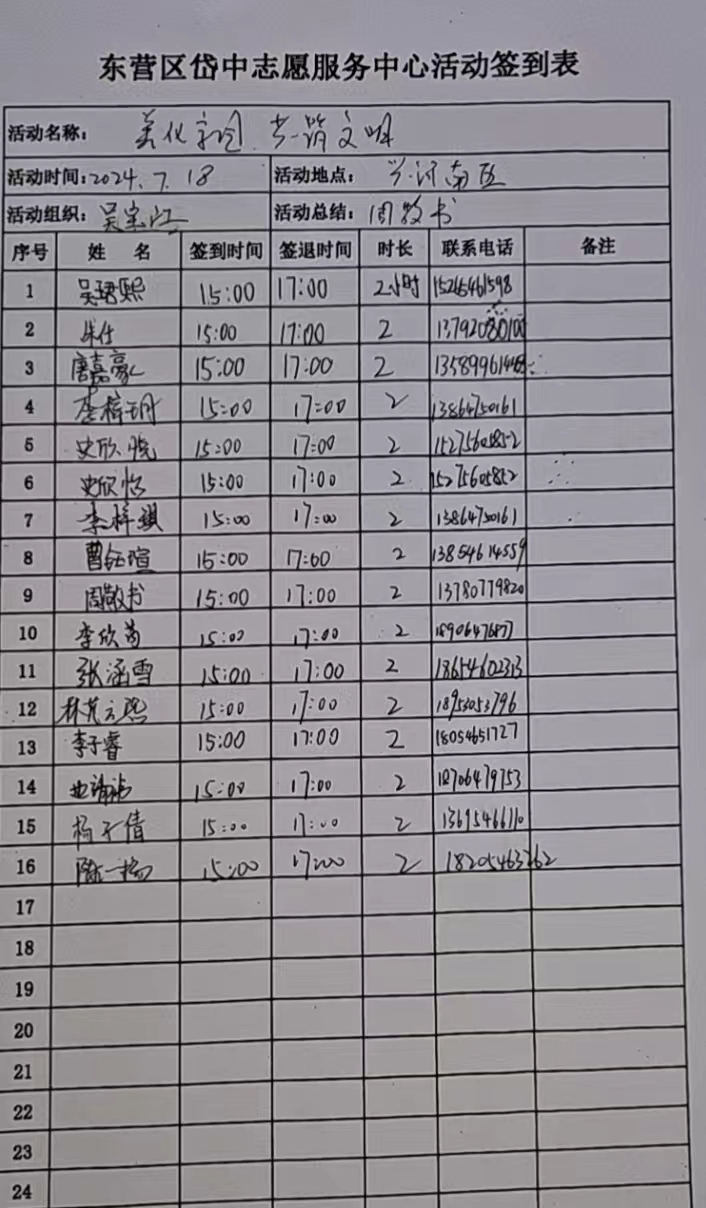 东营区岱中志愿服务中心活动签到表
活动名称： 美化家园 共筑文明
活动时间：2024.7.18 活动地点： 南区
活动组织：吴宝江 活动总结：周敬书
序号 姓 名 签到时间 签退时间 时长 联系电话 备注
1 吴珺熙 15:00 17:00 2小时 15265461598
2 朱仕 15:00 17:00 2
3 唐嘉豪 15:00 17:00 2
4 李梓玥 15:00 17:00 2 13864750161
5 史欣悦 15:00 17:00 2 15275605852
6 史欣怡 15:00 17:00 2 15275605852
7 李梓祺 15:00 17:00 2 13864750161
8 曹钰瑄 15:00 17:00 2 13854614559
9 周敬书 15:00 17:00 2 13780779820
10 李欣芮 15:00 17:00 2
11 张涵雪 15:00 17:00 2 18654602313
12 15:00 17:00 2 18953053796
13 李子睿 15:00 17:00 2 18054651727
14 15:00 17:00 2 18706479753
15 杨子倩 15:00 17:00 2
16 陈一杨 15:00 17:00 2 18205463762
17
18
19
20
21
22
23
24